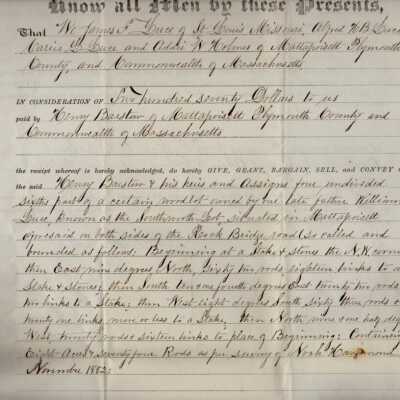 Know all Men by these Presents,
That We James F. Luce of St Louis Missouri, H B Luce
L Luce and Addie W Holmes of Mattapoisett Plymouth
County, and Commonwealth of Massachusetts
IN CONSIDERATION OF Two hundred seventy Dollars to us
paid by Henry Barstow of Mattapoisett Plymouth County and
Commonwealth of Massachusetts
the receipt whereof is hereby acknowledged, do hereby GIVE, GRANT, BARGAIN, SELL, and CONVEY
the said Henry Barstow & his heirs and Assigns four undivided
sixths part of a certain woodlot owned by our late father William
Luce, known as the Southworth Lot, situated in Mattapoisett
aforesaid on both sides of the Bridge road (so called and
bounded as follows: Beginning at a Stake & Stones the N.W. corner
then East nine degrees North, Sixty rods eighteen links to a
Stake & Stones; then South degrees East twenty rods
links to a Stake: then West eight degrees South sixty three rods
twenty one links, more or less to a Stake, then North nine degrees
West, twenty rods & sixteen links to place of Beginning: Containing
Eight Acres & seventy four Rods as per survey of Noah Hammond
November 1882: